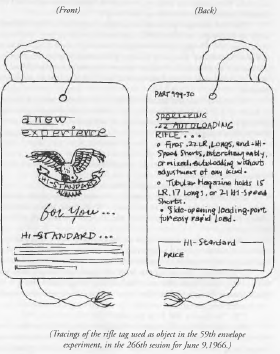 (Front)
(Back)
a new
experience
HI-STANDARD
for you...
HI-STANDARD...
PART 999-50
SPORT-KING
.22 AUTOLOADING
RIFLE...
• Fires .22 LR, Longs, and Hi-
Speed Shorts, interchangeably,
or mixed, autoloading without
adjustment of any kind.
• Tubular Magazine holds 15
LR, 17 Longs, or 21 Hi-Speed
Shorts.
• Side-opening loading-port
for easy rapid load.
HI-Standard
PRICE
(Tracings of the rifle tag used as object in the 59th envelope
experiment, in the 266th session for June 9, 1966.)